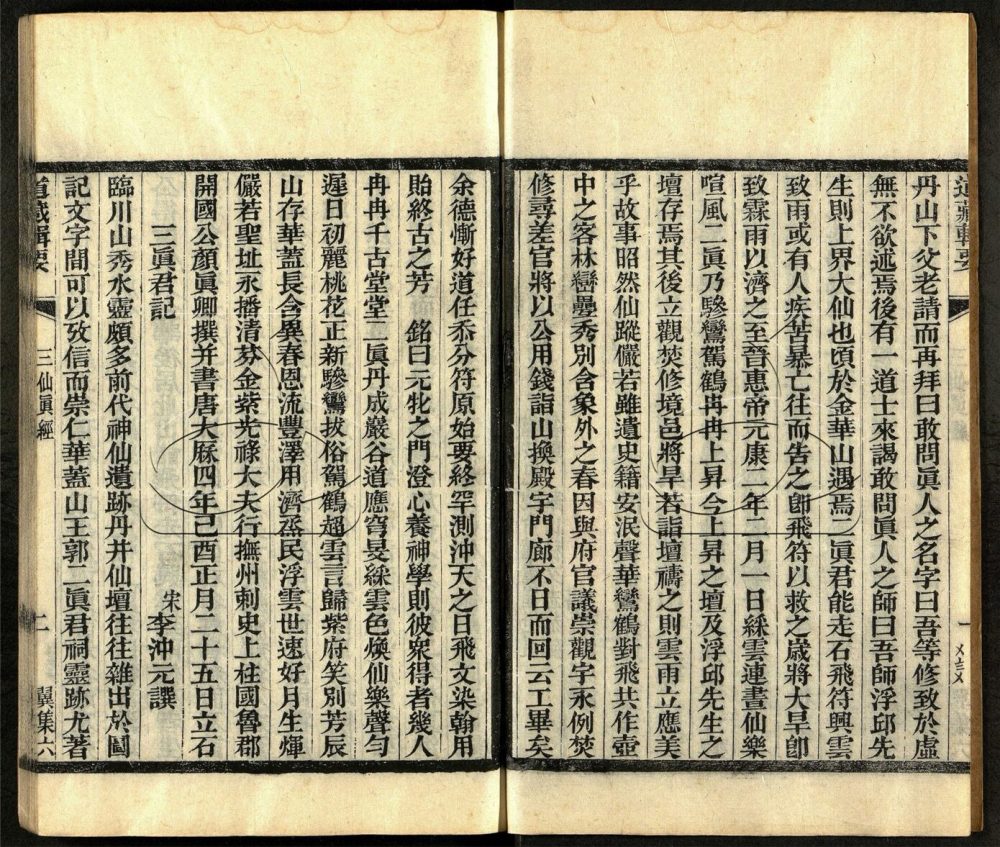 道藏輯要
一
丹山下父老請而再拜曰敢問眞人之名字曰吾等修致於虛
無不欲述焉後有一道士來謁敢問眞人之師曰吾師浮邱先
生則上界大仙也頃於金華山遇焉二眞君能走石飛符興雲
致雨或有人疾苦暴亡往而告之卽飛符以救之歲將大旱卽
致霖雨以濟之至晉惠帝元康二年二月一日綵雲連晝仙樂
喧風二眞乃驂鸞駕鶴冉冉上昇今上昇之壇及浮邱先生之
壇存焉其後立觀焚修境邑將旱若詣壇禱之則雲雨立應美
乎故事昭然仙蹤儼若雖遺史籍安泯聲華鸞鶴對飛共作壺
中之客林巒疊秀別含象外之春因與府官議崇觀宇永例焚
修尋差官將以公用錢詣山換殿宇門廊不日而回云工畢矣
余德慚好道任忝分符原始要終罕測沖天之日飛文染翰用
貽終古之芳　銘曰元牝之門澄心養神學則彼衆得者幾人
冉冉千古堂堂二眞丹成巖谷道應穹旻綵雲色煥仙樂聲勻
遲日初麗桃花正新驂鸞拔俗駕鶴超雲言歸紫府笑別芳辰
山存華蓋長含異春恩流豐澤用濟烝民浮雲世速好月生輝
儼若聖址永播清芬金紫光祿大夫行撫州刺史上柱國魯郡
開國公顏眞卿撰并書唐大厤四年己酉正月二十五日立石
三眞君記　宋　李沖元譔
臨川山秀水靈頗多前代神仙遺跡丹井仙壇往往雜出於圖
記文字間可以攷信而崇仁華蓋山王郭二眞君祠靈跡尤著
道藏輯要
三仙眞經
二
翼集六